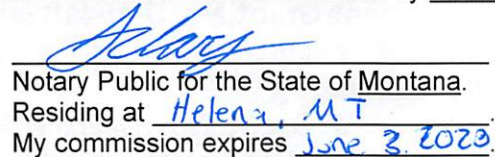 Notary Public for the State of Montana.
Residing at Helena, MT.
My commission expires June 3, 2023.